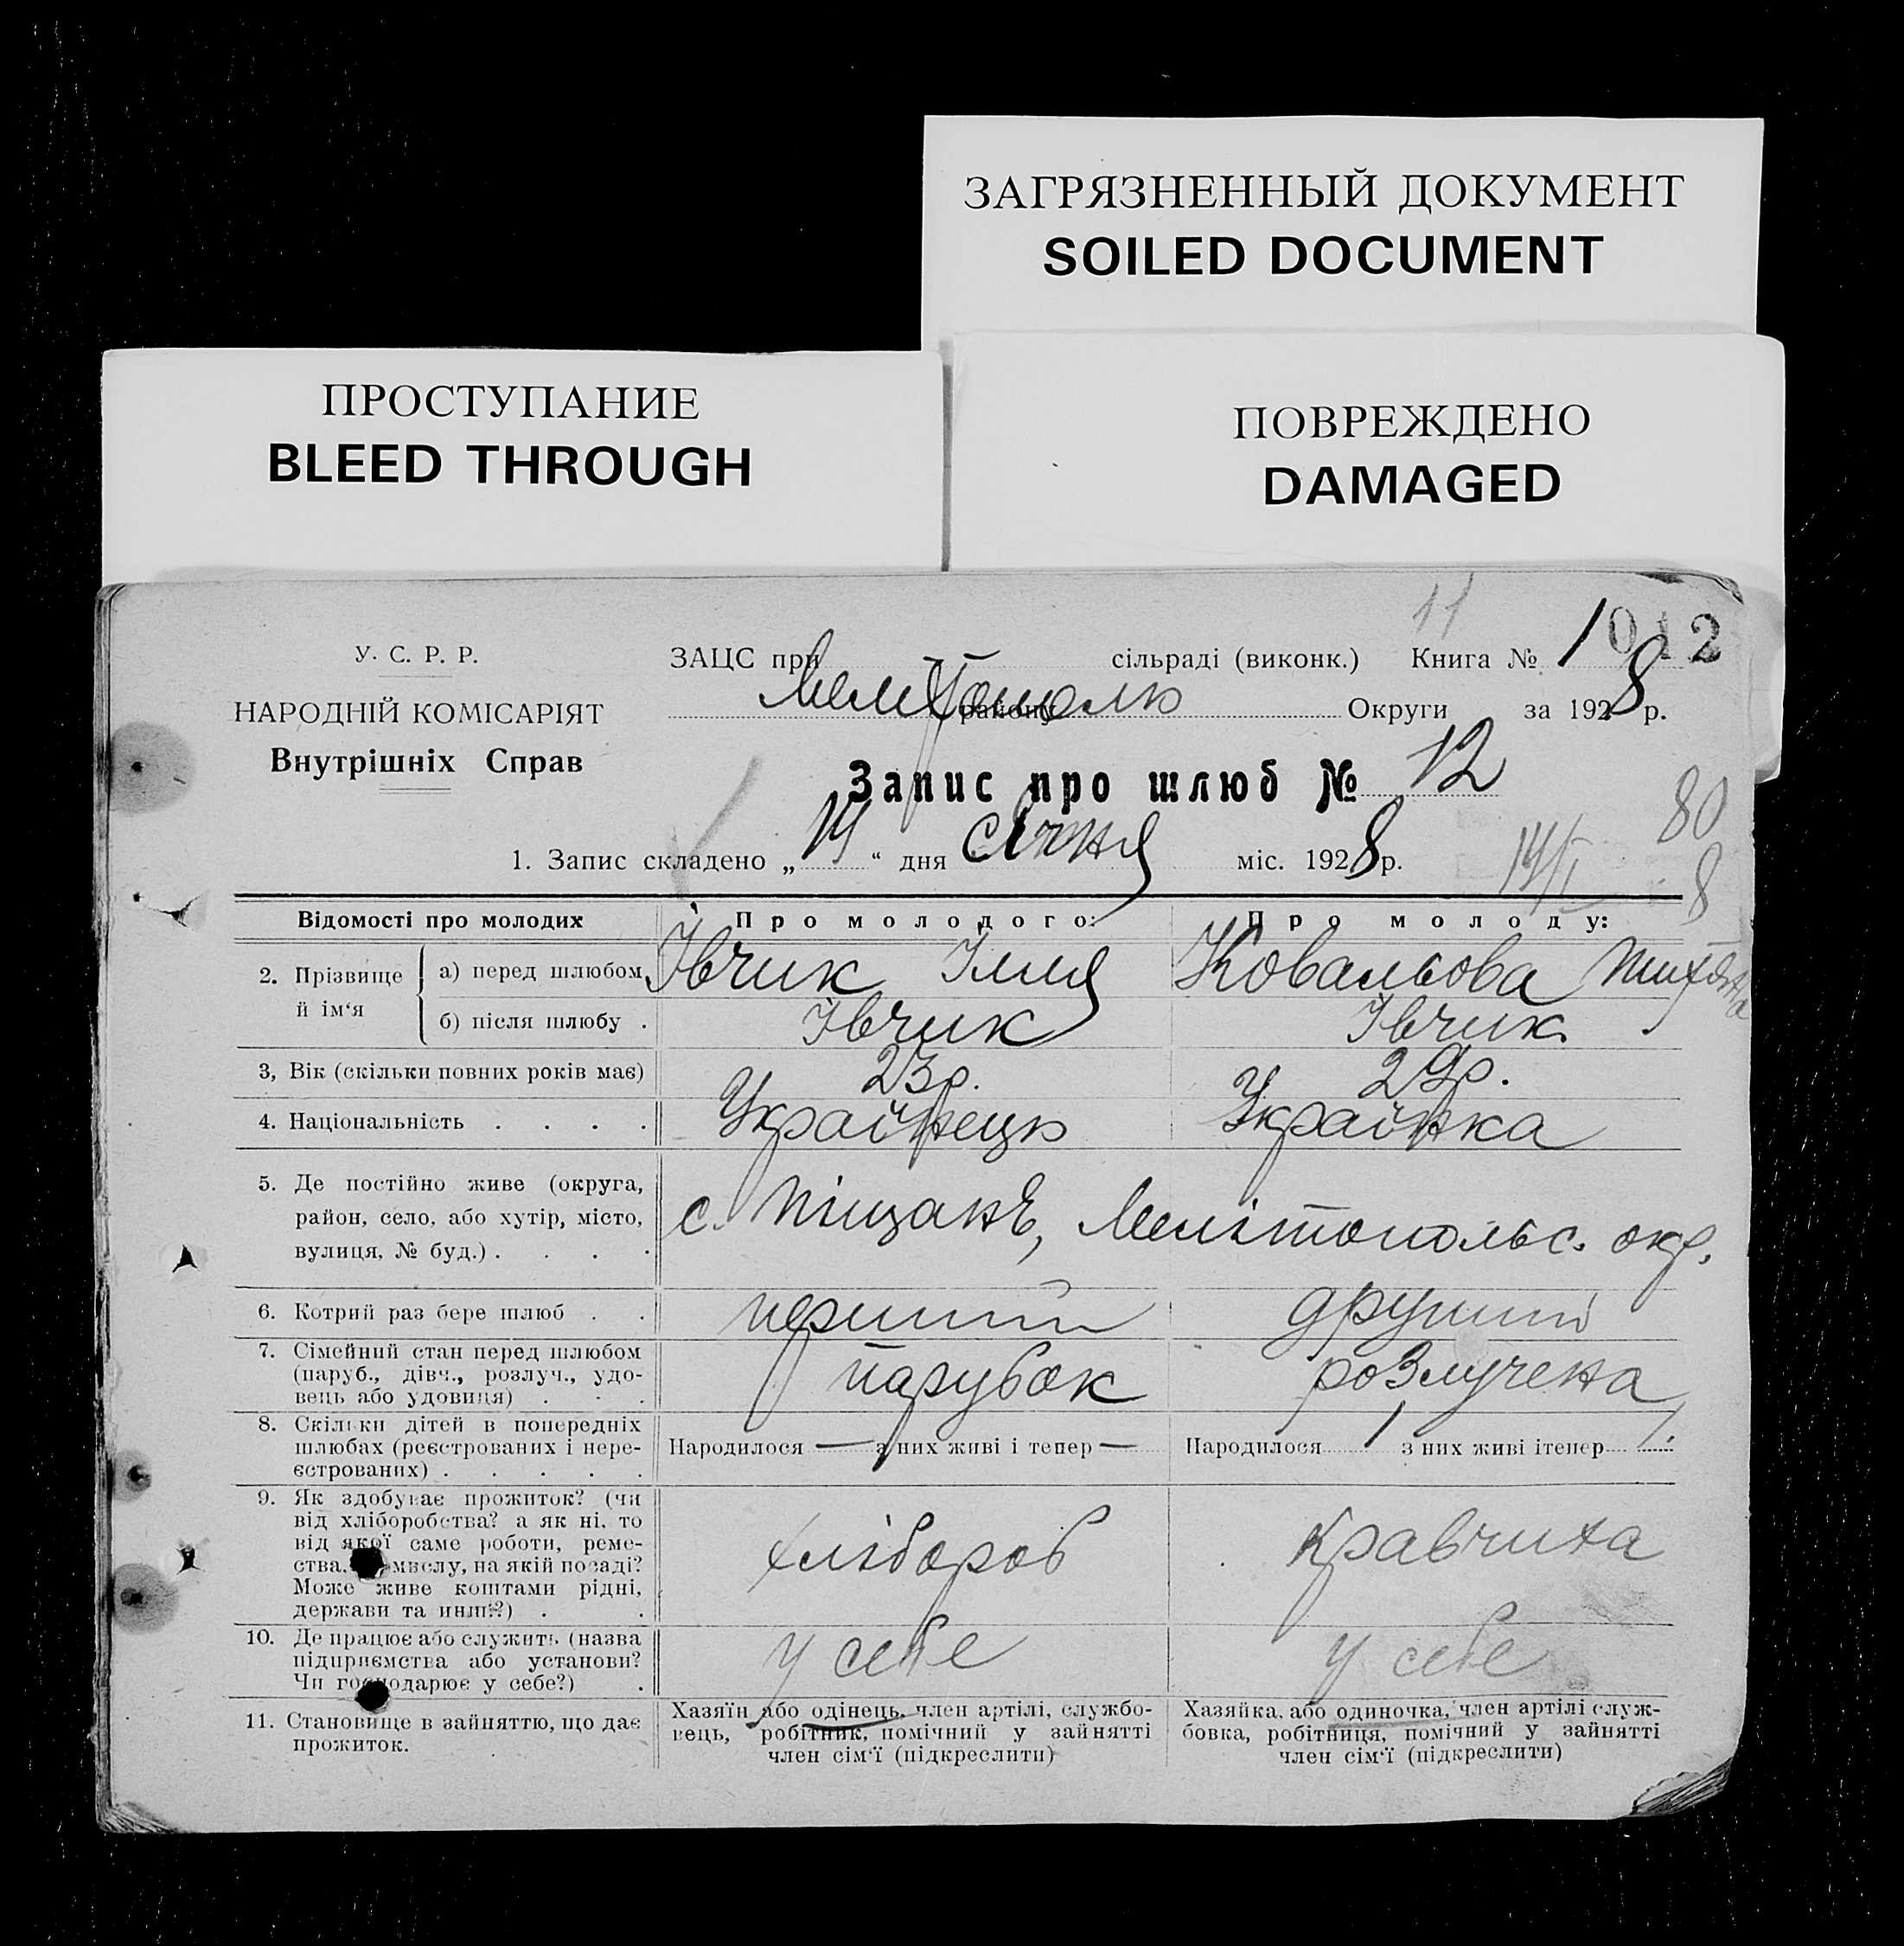 ЗАГРЯЗНЕННЫЙ ДОКУМЕНТ
SOILED DOCUMENT
ПРОСТУПАНИЕ
BLEED THROUGH
ПОВРЕЖДЕНО
DAMAGED
11
У. С. Р. Р.
НАРОДНІЙ КОМІСАРІЯТ
Внутрішніх Справ
ЗАЦС при сільраді (виконк.) Книга № 1 012
району Округи за 1928 р.
Запис про шлюб № 12
80
1. Запис складено „14“ дня січня міс. 1928 р. 14/I 8
Відомості про молодих Про молодого: Про молоду:
2. Прізвище й ім‘я
а) перед шлюбом Івчик Ілля Ковальова
б) після шлюбу . Івчик Івчик
3, Вік (скільки повних років має) 23 р. 29 р.
4. Національність . . . . Українець Українка
5. Де постійно живе (округа,
район, село, або хутір, місто,
вулиця, № буд.) . . . .
с. Піщанѣ, Мелітопольс. окр.
6. Котрий раз бере шлюб . . перший другий
7. Сімейний стан перед шлюбом
(паруб., дівч., розлуч., удо-
вець або удовиця) . . .
парубок розлучена
8. Скільки дітей в попередніх
шлюбах (реєстрованих і нере-
єстрованих) . . . . .
Народилося — з них живі і тепер —
Народилося 1 з них живі ітепер 1.
9. Як здобуває прожиток? (чи
від хліборобства? а як ні, то
від якої саме роботи, реме-
ства, мислу, на якій посаді?
Може живе коштами рідні,
держави та инші?) . .
хлібороб кравчиха
10. Де працює або служить (назва
підприємства або установи?
Чи господарює у себе?) .
у себе у себе
11. Становище в зайняттю, що дає
прожиток.
Хазяїн або одінець, член артілі, службо-
вець, робітник, помічний у зайнятті
член сім‘ї (підкреслити)
Хазяйка, або одиночка, член артілі служ-
бовка, робітниця, помічний у зайнятті
член сім‘ї (підкреслити)